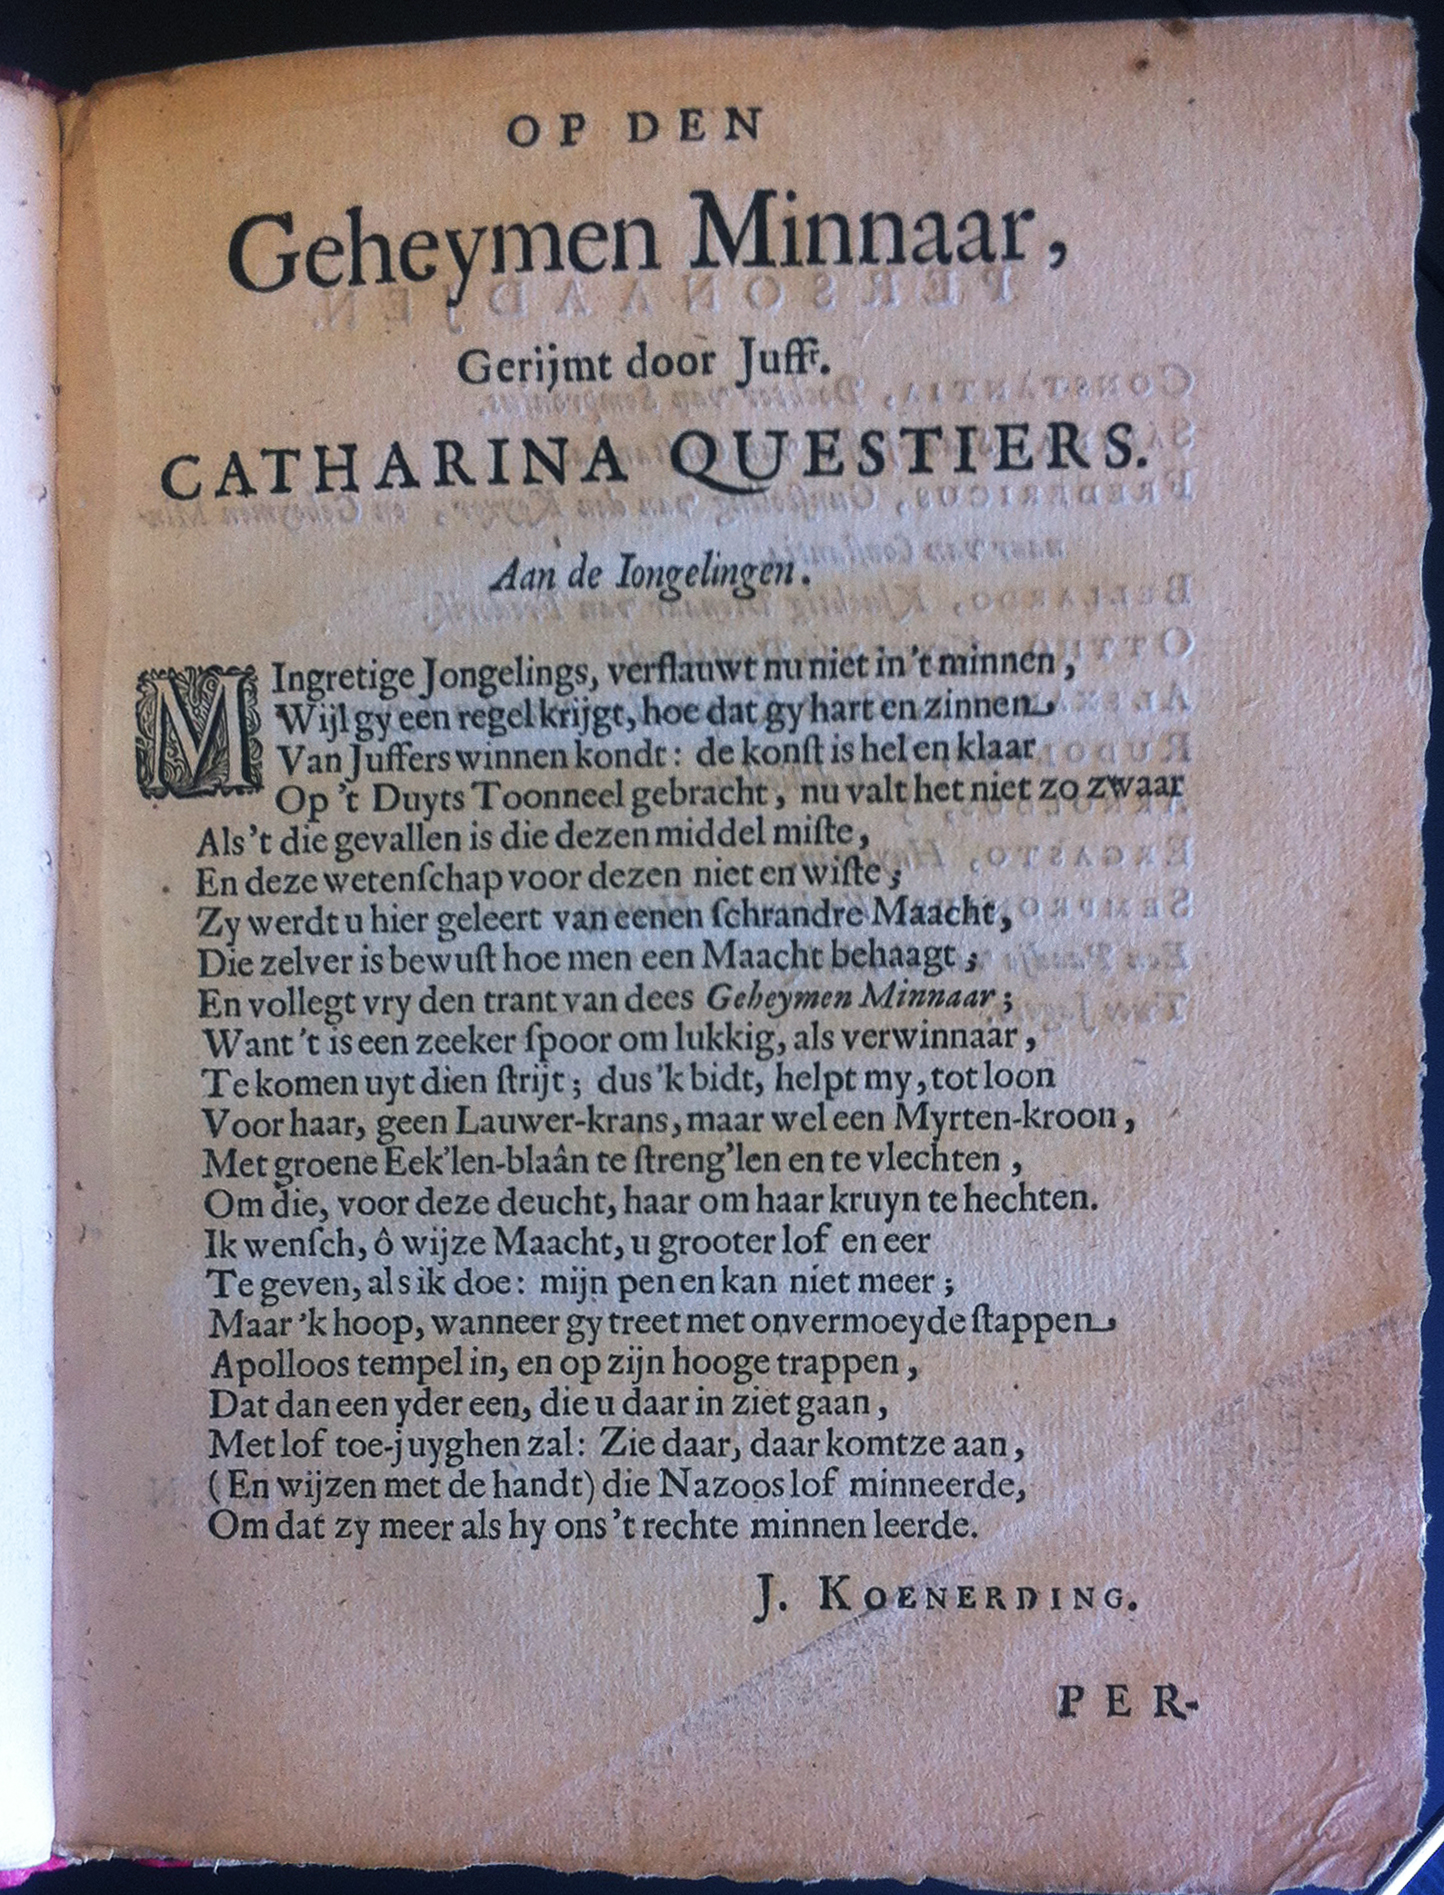 OP DEN
Geheymen Minnaar,
Gerijmt door Juffr.
CATHARINA QUESTIERS.
Aan de Iongelingen.
MIngretige Jongelings, verflauwt nu niet in 't minnen,
Wijl gy een regel krijgt, hoe dat gy hart en zinnen
Van Juffers winnen kondt: de konſt is hel en klaar
Op 't Duyts Toonneel gebracht, nu valt het niet zo zwaar
Als 't die gevallen is die dezen middel miſte,
En deze wetenſchap voor dezen niet en wiſte;
Zy werdt u hier geleert van eenen ſchrandre Maacht,
Die zelver is bewuſt hoe men een Maacht behaagt;
En vollegt vry den trant van dees Geheymen Minnaar;
Want 't is een zeeker ſpoor om lukkig, als verwinnaar,
Te komen uyt dien ſtrijt; dus 'k bidt, helpt my, tot loon
Voor haar, geen Lauwer-krans, maar wel een Myrten-kroon,
Met groene Eek'len-blaân te ſtreng'len en te vlechten,
Om die, voor deze deucht, haar om haar kruyn te hechten.
Ik wenſch, ô wijze Maacht, u grooter lof en eer
Te geven, als ik doe: mijn pen en kan niet meer;
Maar 'k hoop, wanneer gy treet met onvermoeyde ſtappen
Apolloos tempel in, en op zijn hooge trappen,
Dat dan een yder een, die u daar in ziet gaan,
Met lof toe-juyghen zal: Zie daar, daar komtze aan,
(En wijzen met de handt) die Nazoos lof minneerde,
Om dat zy meer als hy ons 't rechte minnen leerde.
J. KOENERDING.
PER-